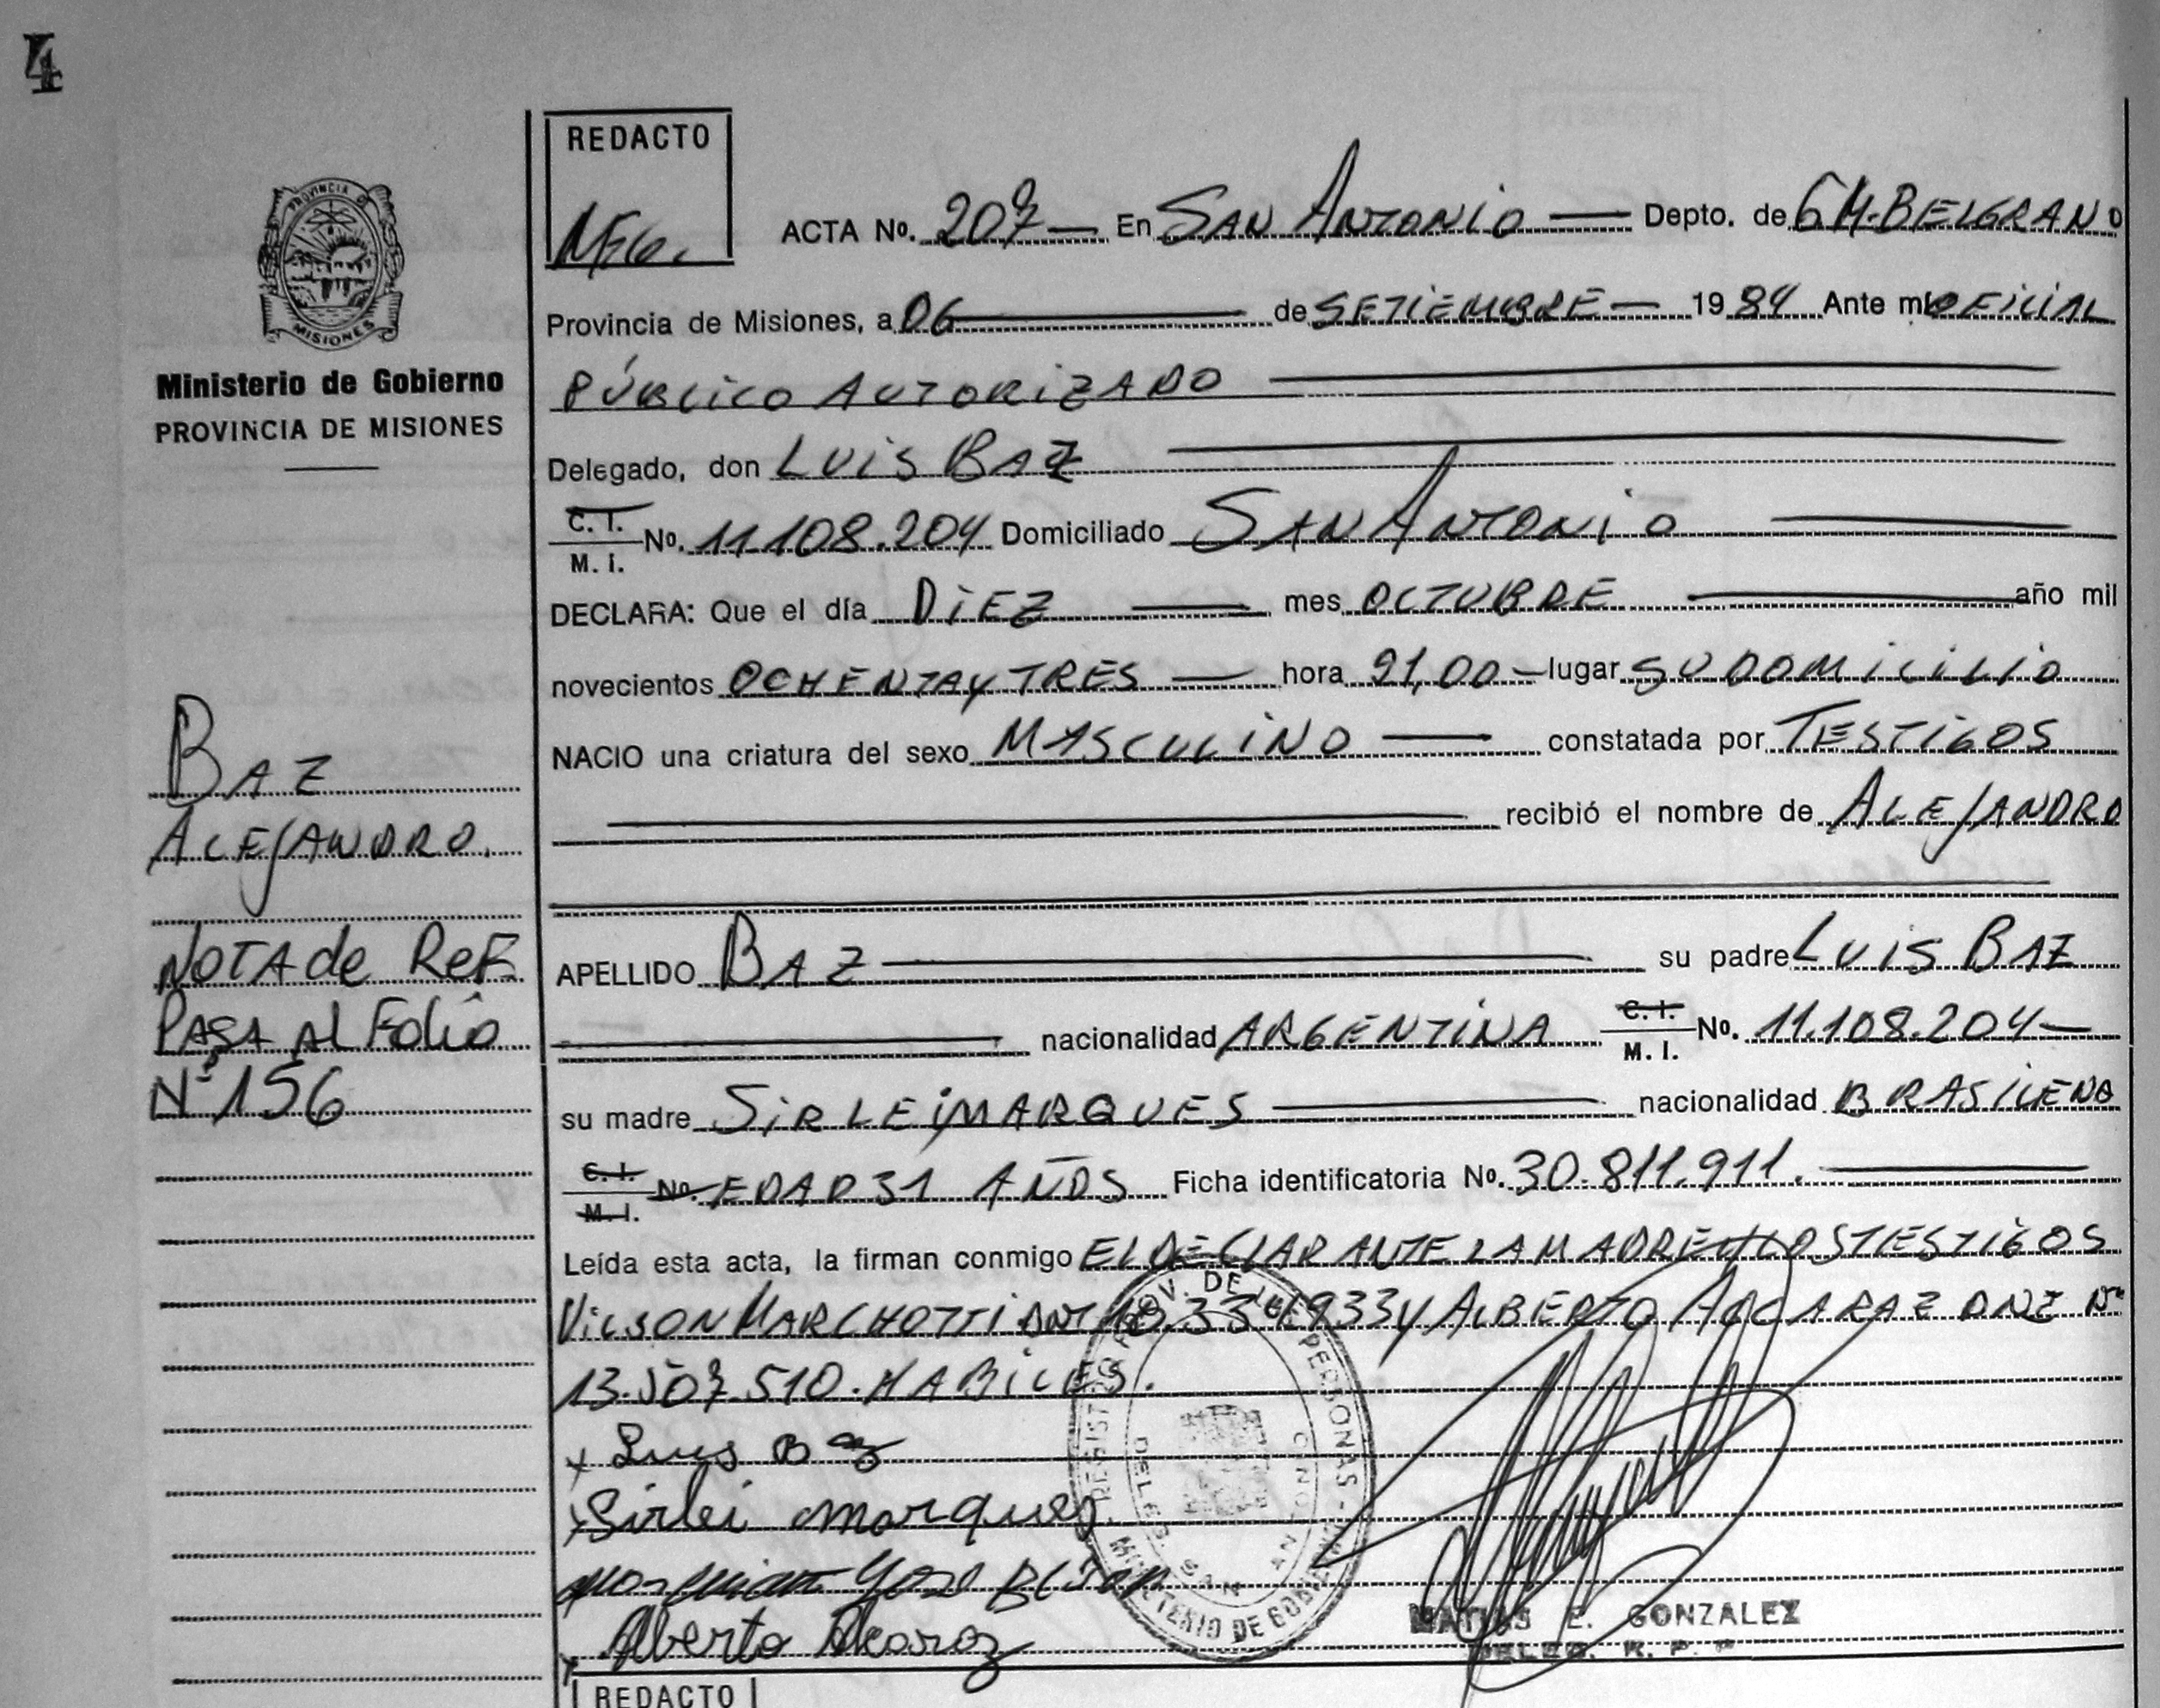 4
REDACTO
ACTA No. 207 En SAN ANTONIO Depto. de G M. BELGRANO
Provincia de Misiones, a 06 de SETIEMBRE 1984 Ante mí OFICIAL
PÚBLICO AUTORIZADO
Delegado, don LUIS BAZ
C. I. M. I. No. 11.108.204 Domiciliado SAN ANTONIO
DECLARA: Que el día DIEZ mes OCTUBRE año mil
novecientos OCHENTA Y TRES hora 21,00 lugar SU DOMICILIO
NACIO una criatura del sexo MASCULINO constatada por TESTIGOS
recibió el nombre de ALEJANDRO
APELLIDO BAZ su padre LUIS BAZ
nacionalidad ARGENTINA C. I. M. I. No. 11.108.204
su madre SIRLEI MARQUES nacionalidad BRASILEÑA
C. I. M. I. No. EDAD 31 AÑOS Ficha identificatoria No. 30.811.911.
Leída esta acta, la firman conmigo EL DECLARANTE LA MADRE Y LOS TESTIGOS
VILSON MARCHOTTI DNI 18.334.933 Y ALBERTO ALCARAZ DNI Nº
13.507.510. HABILES.
x Luis Baz
x Sirlei Marques
x Alberto Alcaraz
MATIAS E. GONZALEZ
DELEG. R. P.
REDACTO
PROVINCIA DE MISIONES
Ministerio de Gobierno
PROVINCIA DE MISIONES
BAZ
ALEJANDRO.
NOTA de Ref.
PASA Al Folio
Nº 156
REGISTRO PROV. DE LAS PERSONAS - MINISTERIO DE GOBIERNO
DELEG. SAN ANTONIO